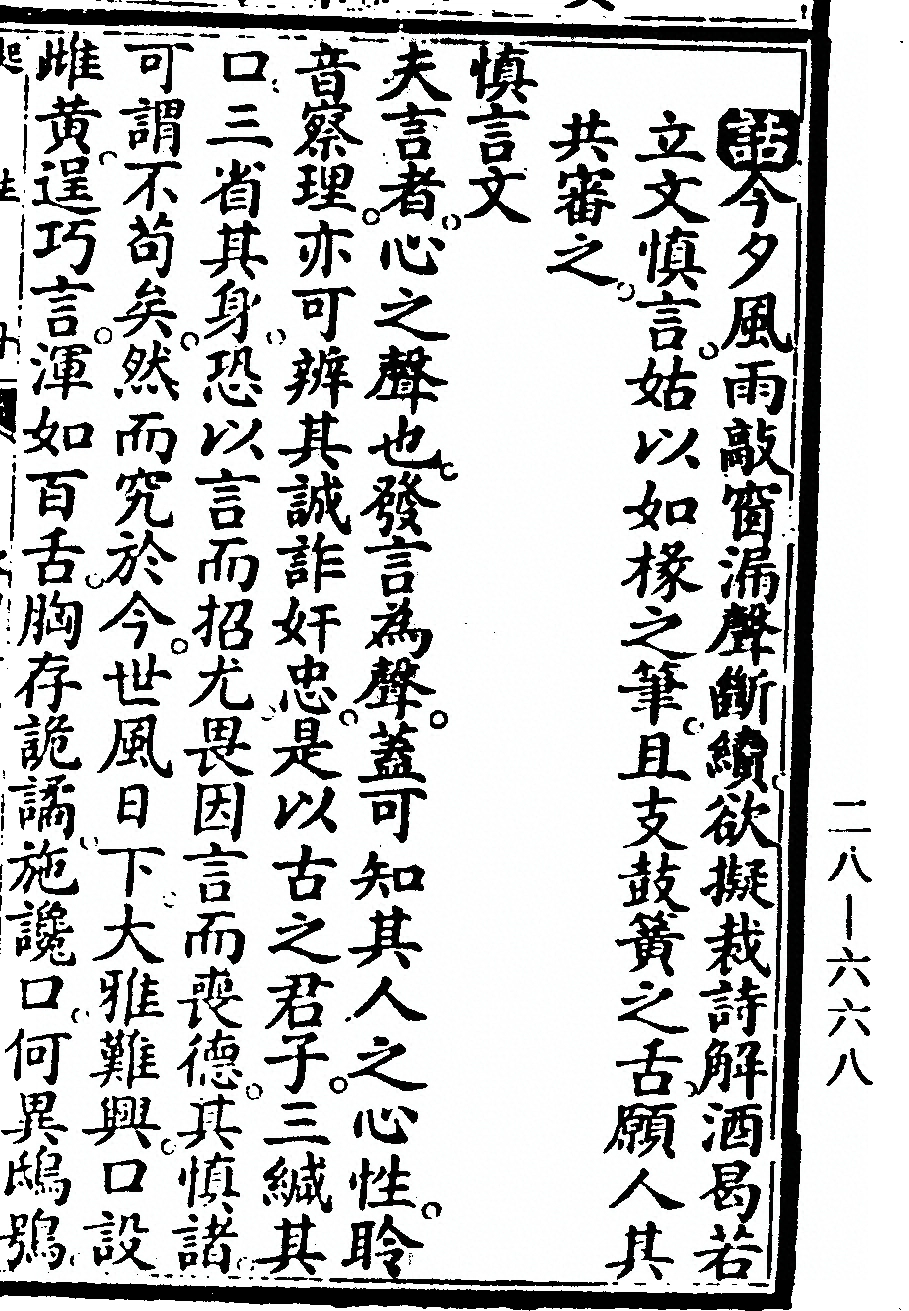 話今夕風雨敲窗漏聲斷續欲擬裁詩解酒曷若
立文慎言姑以如椽之筆且支鼓簧之舌願人其
共審之
慎言文
夫言者心之聲也發言為聲蓋可知其人之心性聆
音察理亦可辨其誠詐奸忠是以古之君子三緘其
口三省其身恐以言而招尤畏因言而喪德其慎諸
可謂不苟矣然而究於今世風日下大雅難興口設
雌黃逞巧言渾如百舌胸存詭譎施讒口何異鴟鴞
二八—六六八